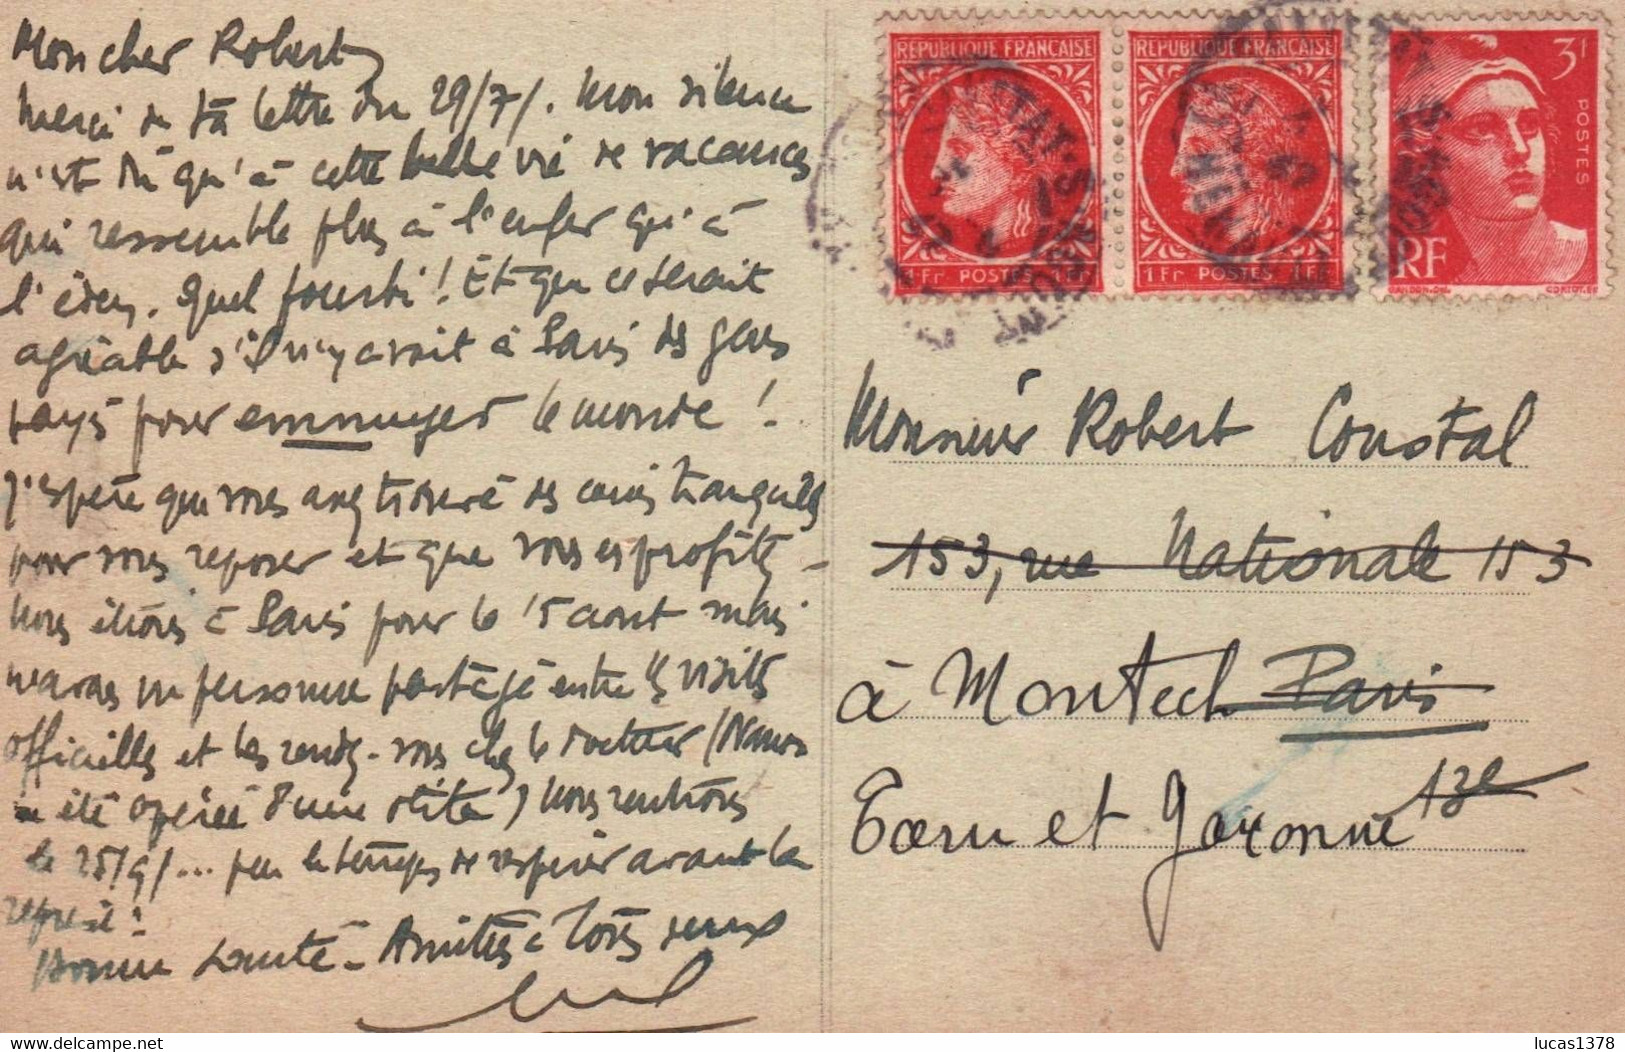 Mon cher Robert,
Merci de ta lettre du 29/7/. Mon silence
n'est dû qu'à cette belle vie de vacances
qui ressemble plus à l'enfer qu'à
l'éden. Quel fourbi ! Et que ce serait
agréable s'il n'y avait à Paris des gens
payés pour emmuyer le monde !
J'espère que vous avez trouvé des coins tranquilles
pour vous reposer et que vous en profitez -
Nous étions à Paris pour le 15 aout mais
nous un personnue partagé entre les visites
officielles et les rendez-vous chez le docteur (
a été opérée d'une otite) Nous rentrons
le 25/9/... peu le temps de respirer avant la
reprise !
Bonne santé - Amitiés à tous deux
REPUBLIQUE FRANÇAISE
1 Fr POSTES 1 Fr
REPUBLIQUE FRANÇAISE
1 Fr POSTES 1 Fr
3F
POSTES
RF
GANDON.DEL CORTOT.SC
Monsieur Robert Coustal
153, rue Nationale 153
à Montech Paris
Tarn et Garonne 13e
lucas1378